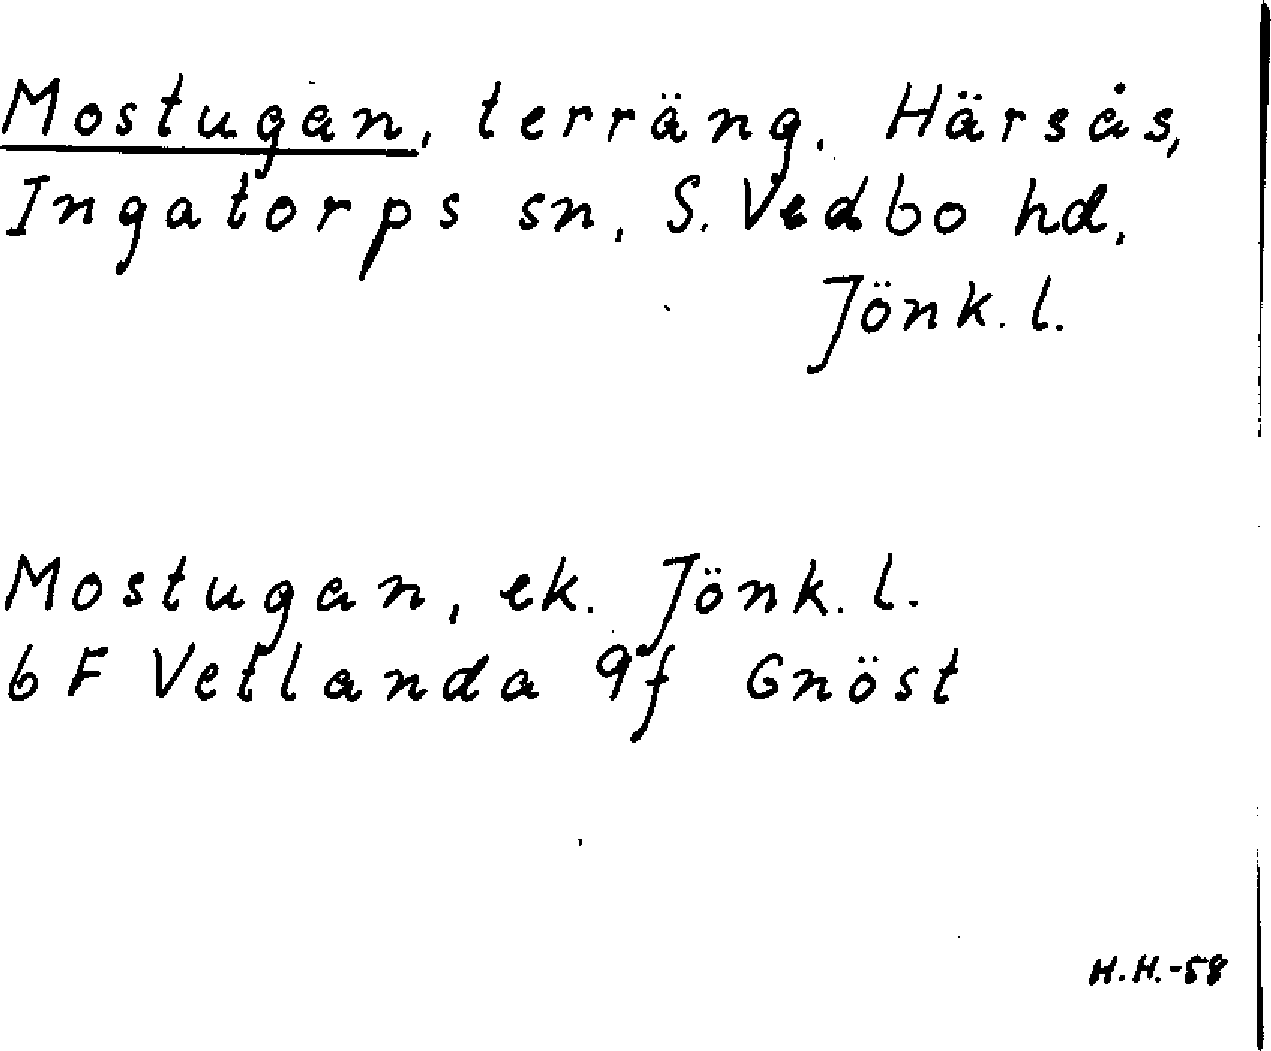 Mostugan, terräng. Härsås,
Ingatorps sn, S. Vedbo hd,
Jönk. l.
Mostugan, ek. Jönk. l.
6 F Vetlanda 9f Gnöst
H.H.-58